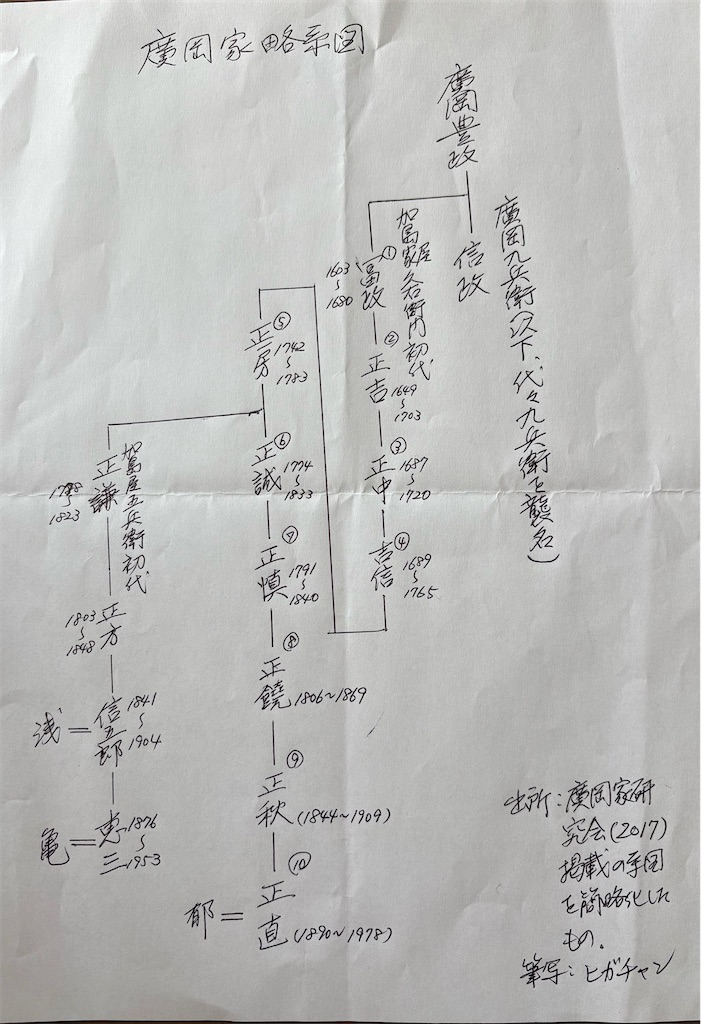 廣岡家略系図
廣岡豊政
信政
廣岡九兵衛(以下、代々九兵衛を襲名)
①
冨政
1603
〜
1680
加島屋久右衛門初代
②
正吉
1649
〜
1703
③
正中
1687
〜
1720
④
吉信
1689
〜
1765
⑤
正房
1742
〜
1783
⑥
正誠
1774
〜
1833
⑦
正慎
1791
〜
1840
⑧
正饒
1806〜1869
⑨
正秋
(1844〜1909)
⑩
郁=正直
(1890〜1978)
正謙
〜
1823
加島屋五兵衛初代
正方
1803
〜
1848
浅=信五郎
1841
〜
1904
亀=恵三
1876
〜
1953
出所:廣岡家研
究会(2017)
掲載の系図
を簡略化した
もの。
筆写:ヒガチャン